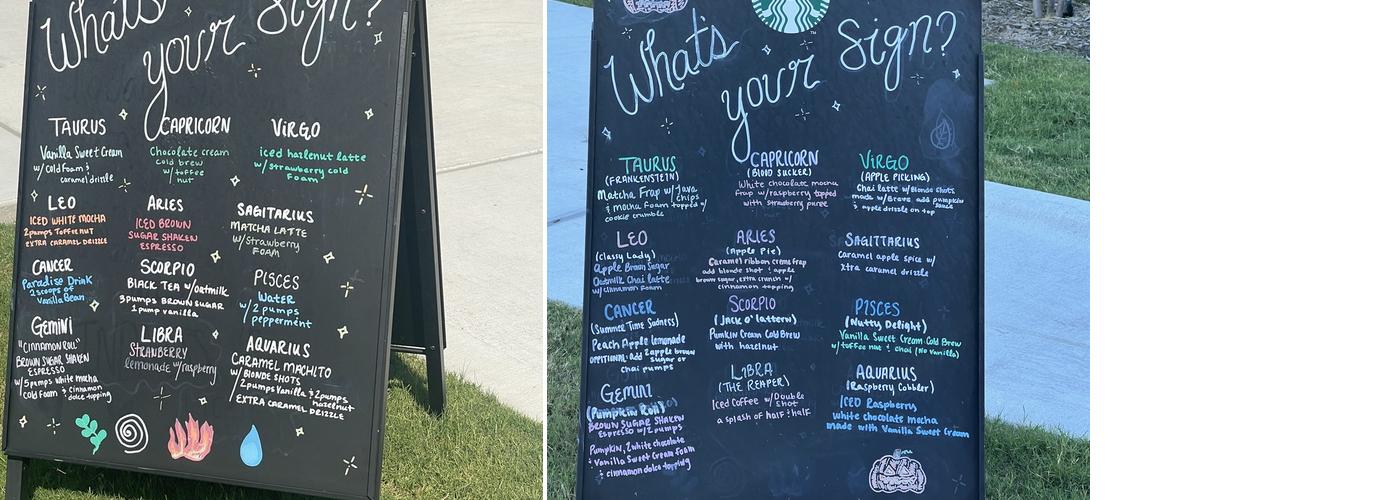 What's
your Sign?
TAURUS
Vanilla Sweet Cream
w/ Cold Foam &
caramel drizzle
CAPRICORN
Chocolate cream
cold brew
w/ toffee
nut
VIRGO
iced hazlenut latte
w/ strawberry cold
Foam
LEO
ICED WHITE MOCHA
2 pumps TOFFEE NUT
EXTRA CARAMEL DRIZZLE
ARIES
ICED BROWN
SUGAR SHAKEN
ESPRESSO
SAGITARIUS
MATCHA LATTE
w/ Strawberry
FOAM
CANCER
Paradise Drink
2 scoops of
Vanilla Bean
SCORPIO
BLACK TEA w/ oatmilk
3 pumps BROWN SUGAR
1 pump vanilla
PISCES
WATER
w/ 2 pumps
pepperment
GEMINI
"CINNAMON ROLL"
BROWN SUGAR SHAKEN
ESPRESSO
w/ 5 pumps White mocha
cold Foam & cinnamon
dolce topping
LIBRA
STRANBERRY
lemonade w/ raspberry
AQUARIUS
CARAMEL MACHITO
w/ BLONDE SHOTS
2 pumps Vanilla & 2 pumps
hazelnut
EXTRA CARAMEL DRIZZLE
What's
your Sign?
TAURUS
(FRANKENSTEIN)
Matcha Frap w/ Java
Chips
& mocha Foam topped w/
cookie crumble
CAPRICORN
(Blood SUCKER)
White chocolate mocha
Frap w/ raspberry topped
with strawberry puree
VIRGO
(APPLE PICKING)
Chai latte w/ Blonde Shots
made w/ Breve add pumpkin
Sauce
& apple drizzle on top
LEO
(Classy Lady)
Apple Brown Sugar
Oatmilk Chai latte
w/ cinnamon Foam
ARIES
(Apple Pie)
Caramel ribbon crème frap
add blonde shot & apple
brown sugar, extra crunch w/
cinnamon topping
SAGITTARIUS
Caramel apple spice w/
Xtra caramel drizzle
CANCER
(Summer Time Sadness)
Peach Apple lemonade
OPPITIONAL: Add 2 apple brown
sugar or
chai pumps
SCORPIO
(Jack O' lattern)
Pumkin Cream Cold Brew
with hazelnut
PISCES
(Nutty Delight)
Vanilla Sweet Cream Cold Brew
w/ toffee nut & chai (No Vanilla)
GEMINI
(Pumpkin Roll)
BROWN SUGAR SHAKEN
Espresso w/ 2 pumps
Pumpkin, 2 white chocolate
& Vanilla Sweet Cream foam
& cinnamon dolce topping
LIBRA
(THE REAPER)
Iced Coffee w/ Double
Shot
a splash of half & half
AQUARIUS
(Raspberry Cobbler)
ICED Raspberry
white chocolate mocha
made with Vanilla Sweet Cream